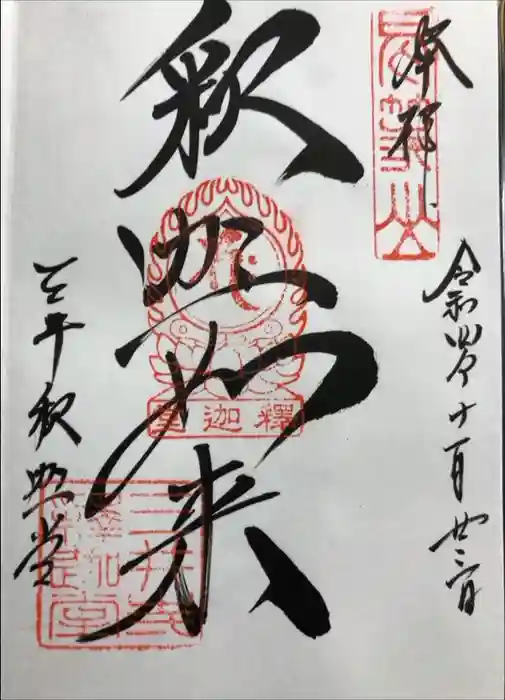 奉拝
令和四年十一月廿三日
釈迦如来
釋迦堂
三井寺釈迦堂